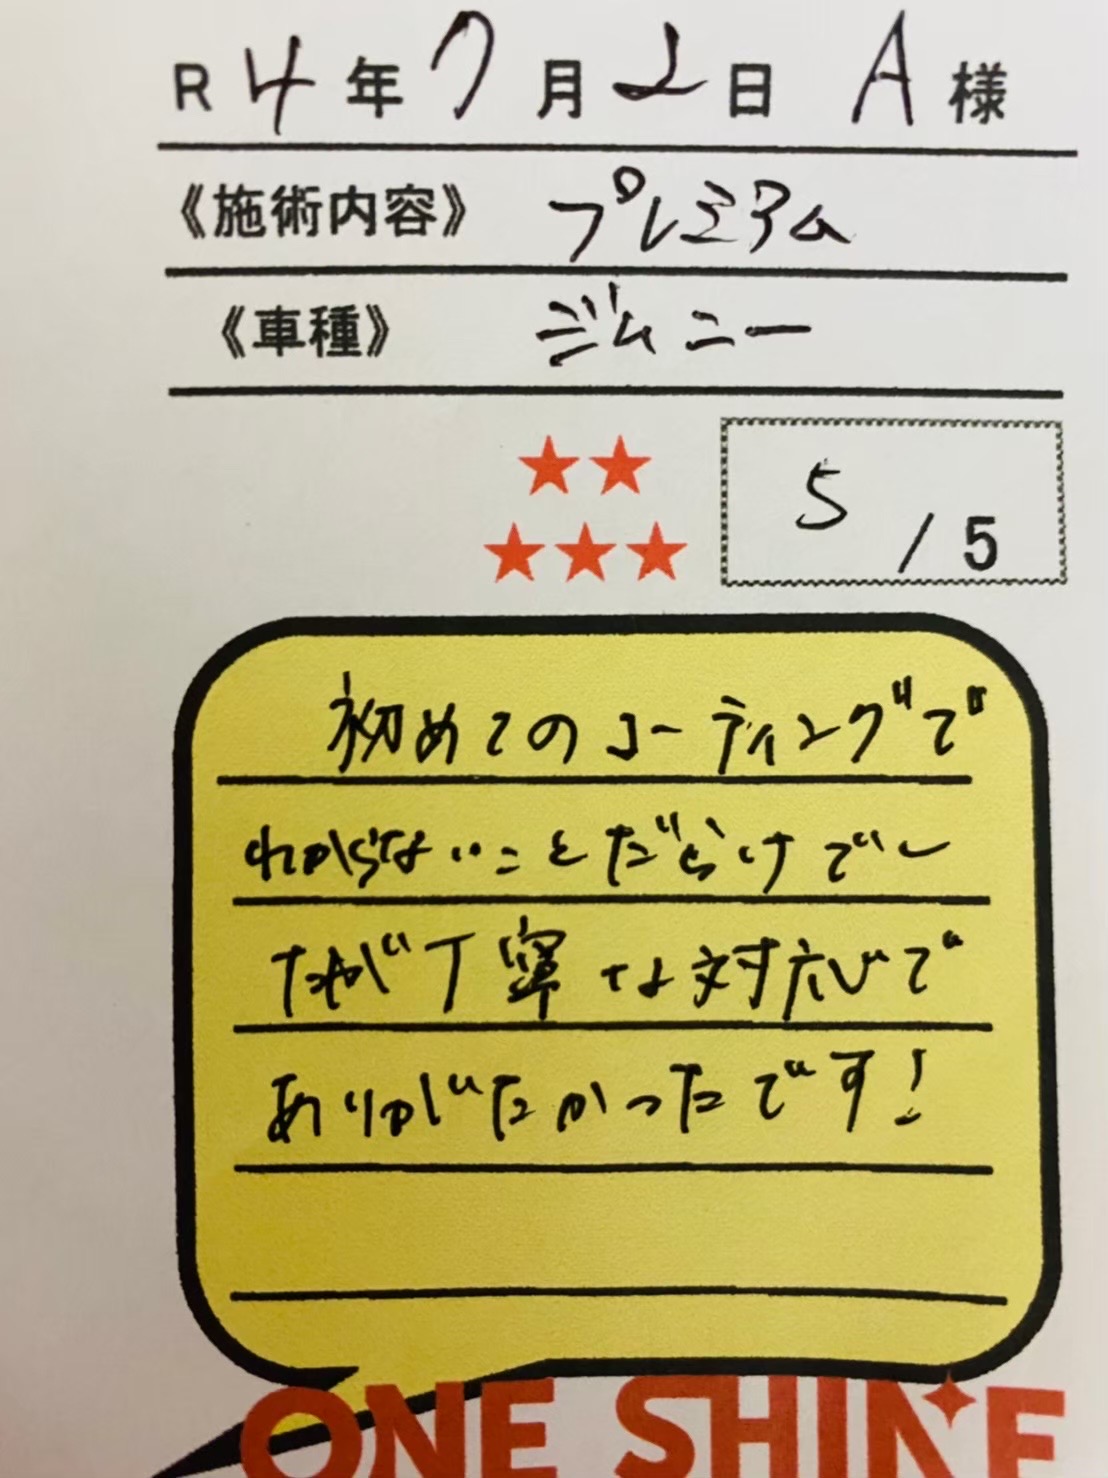 R 4年 7月 2日 A 様
《施術内容》 プレミアム
《車種》 ジムニー
5 / 5
初めてのコーティングで
わからないことだらけでし
たが丁寧な対応で
ありがたかったです!
ONE SHINE